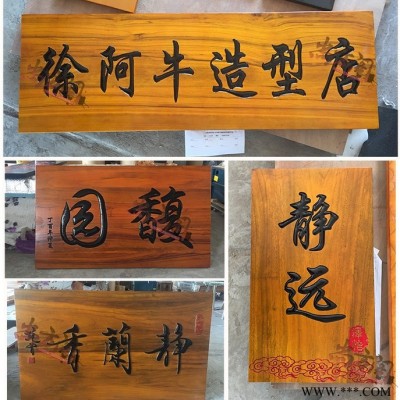 徐阿牛造型店
馥园
丁酉年
静远
静蘭香
www.***.COM